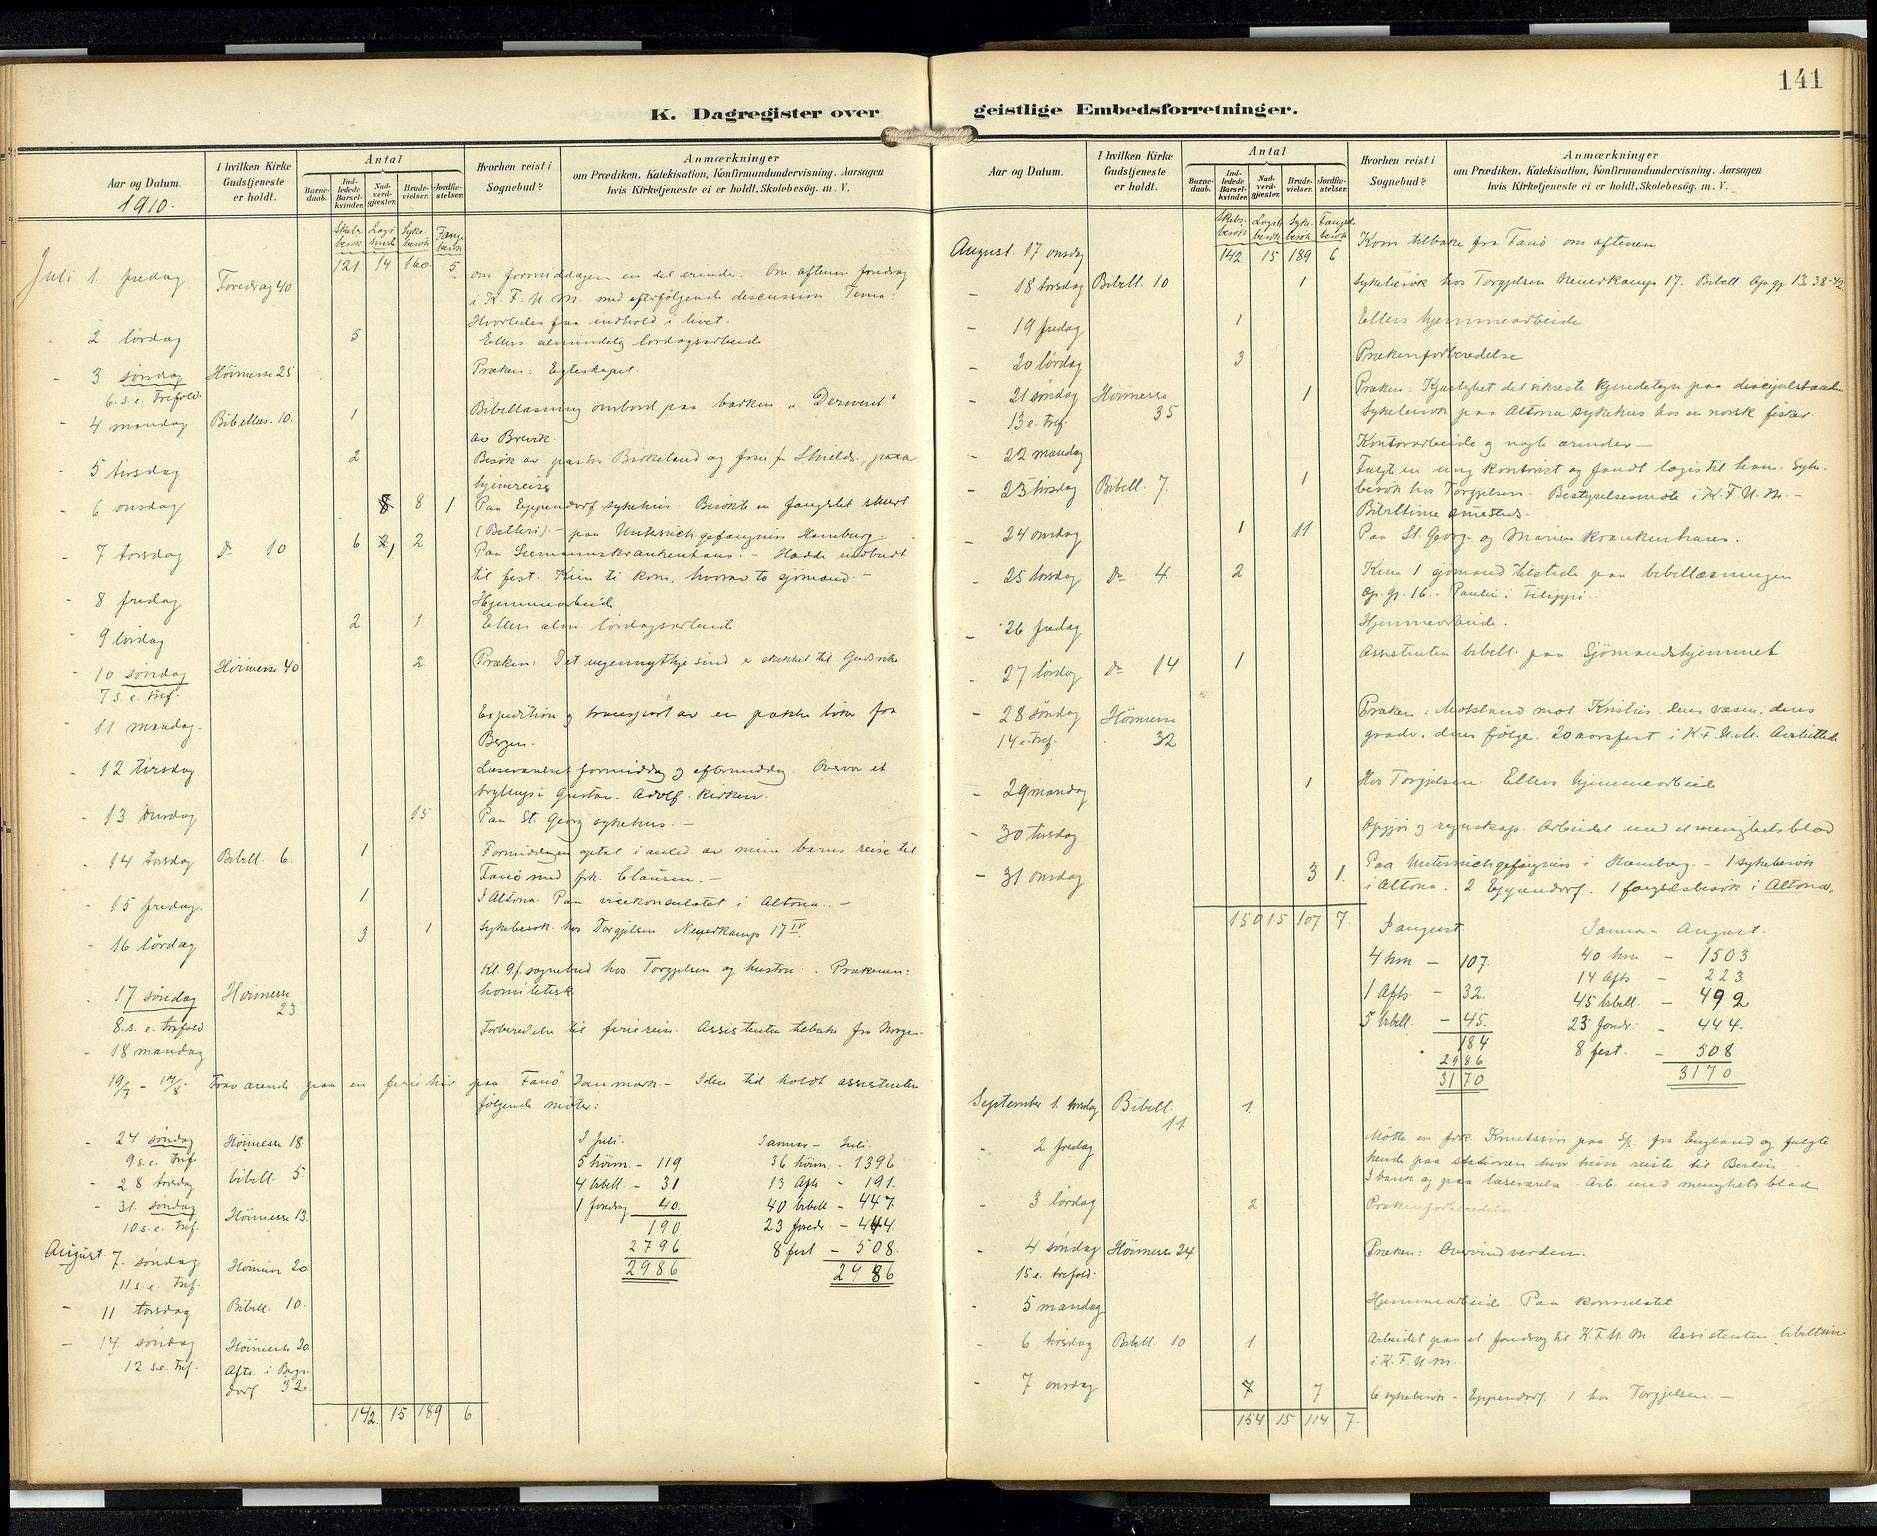 141
K. Dagregister over geistlige Embedsforretninger.
Aar og Datum.
1910.
I hvilken Kirke
Gudstjeneste
er holdt.
Antal
Barne-
daab.
Ind-
ledede
Barsel-
kvinder.
Nad-
verd-
gjæster.
Brude-
vielser.
Jordfæ-
stelser.
Hvorhen reist i
Sognebud?
Anmærkninger
om Prædiken, Katekisation, Konfirmandundervisning. Aarsagen
hvis Kirketjeneste ei er holdt. Skolebesög. m. V.
Skibs-
besök
Syke-
besök
121 14 160 5
Juli 1. fredag Foredrag 40 om formiddagen en del ærinder. Om aftenen foredrag
i K. F. U. M. med efterfølgende discussion. Tema:
Hvorledes faa indhold i livet.
2 lørdag 5 Ellers almindelig lørdagsarbeide
3 søndag Höimesse 25 Præken: Egteskapet.
6. s. e. Trefold.
4 mandag Bibellæs. 10. 1 Bibellæsning ombord paa barken "Derwent"
av Brevik.
5 tirsdag 2 Besök av pastor Birkeland og frue fr Shields, paa
hjemreise
6 onsdag 8 1 Paa Eppendorf sykehus. Besökte en fængslet
(Betleri) - paa Untersuch.gefängnis Hamburg.
7 torsdag do 10 6 1 2 Paa Seemannskrankenhaus. - Hadde indbudt
til fest. Kun ti kom, hvorav to sjömænd. -
8 fredag Hjemmearbeide
9 lørdag 2 1. Ellers alm. lørdagsarbeide
10 søndag Höimesse 40 2 Præken: Det uegennyttige sind er skikket til Guds rike
7 s. e. tref.
11 mandag. Expedition og transport av en pakke böker fra
Bergen.
12 tirsdag Læseværelset formiddag og eftermiddag. Overvar et
bryllup i Gustav. Adolf. kirken.
13 onsdag 15 Paa St. Georg sykehus. -
14 torsdag Bibell. 6. 1 Formiddagen optat i anled. av mine barns reise til
Fanö med frk. Clausen. -
15 fredag. 1. I Altona. Paa vicekonsulatet i Altona. -
16 lørdag 3 1 Sykebesök hos Torgjelsen Neuerkamps 17 IV.
Kl. 9 f. sognebud hos Torgjelsen og hustru. Prækenen:
homiletisk
17 søndag Höimesse
23
8. s. e. trefold Forberedelse til feriereise. Assistenten tilbake fra Norge
18 mandag
19/7 - 17/8 Fraværende paa en ferietur paa Fanö Danmark. - I den tid holdt assistenten
følgende möter:
24 søndag Höimesse 18
9 s. e. Tref.
28 torsdag bibell. 5
31. søndag Höimesse 13.
10 s. e. Tref.
August 7. søndag Höimesse 20
11 s. e. Tref.
11 torsdag Bibell. 10.
14. søndag Höimesse 20
12 s. e. Tref. Afts. i Berge-
dorf 32
142. 15 189 6
I Juli.
5 höim. - 119
4 bibell. - 31
1 foredrag 40.
190
2796
2986
Januar - Juli.
36 höim. - 1396
13 Afts - 191.
40 bibell - 447
23 foredr. - 444.
8 fest - 508.
2986
Aar og Datum.
I hvilken Kirke
Gudstjeneste
er holdt.
Antal
Barne-
daab.
Ind-
ledede
Barsel-
kvinder.
Nad-
verd-
gjæster.
Brude-
vielser.
Jordfæ-
stelser.
Hvorhen reist i
Sognebud?
Anmærkninger
om Prædiken, Katekisation, Konfirmandundervisning. Aarsagen
hvis Kirketjeneste ei er holdt. Skolebesög. m. V.
Skibs-
besök
Syke-
besök
142. 15 189 6
August. 17 onsdag Kom tilbake fra Fanö om aftenen
18 torsdag Bibell. 10 1 Sykebesök hos Torgjelsen Neuerkamps 17. Bibell. Ap. gj. 13. 38-42
19 fredag 1 Ellers hjemmearbeide
20 lørdag 3 Prækenforberedelse
21 søndag Höimesse 35 1 Præken: Kjærlighet det sikreste kjendetegn paa
13 e. tref. Sykebesök paa Altona sykehus hos en norsk fisker.
22 mandag Kontorarbeide og nogle ærinder -
23 tirsdag Bibell. 7. 1 Fulgte en ung kontorist og fandt logis til ham. Syke-
besök hos Torgjelsen. Bestyrelsesmöte i K. F. U. M. -
24 onsdag 1 11. Paa St. Georg- og Marien krankenhaus.
25 torsdag do 4. 2 Kun 1 sjömand tilstede paa bibellæsningen
Ap. gj. 16. - Paulus i Filippi.
26 fredag Hjemmearbeide.
27 lørdag do 14 1 Assistenten bibell. paa Sjömandshjemmet
28 søndag Höimesse 32 Præken: Motstand mot Kristus. dens væsen, dens
14 e. Tref. grader, dens fölge. 20 aarsfest i K. F. U. M.
29 mandag 1 Hos Torgjelsen. Ellers hjemmearbeide
30 tirsdag Opgjör og regnskap. Arbeidet med et menighetsblad
31 onsdag 3 1. Paa Untersuch.gefängnis i Hamburg. - 1 sykebesök
i Altona. 2 Eppendorf. 1 fængselsbesök i Altona.
150 15 107 7.
I august.
4 hm - 107.
1 Afts. - 32.
5 bibell. - 45.
184
2986
3170
Januar - August.
40 hm - 1503
14 Afts - 223
45 bibell. - 492
23 foredr. - 444.
8 fest. - 508
3170
September 1. torsdag Bibell. 11 1.
2 fredag Mötte en frk. Knutsson paa S/S. fra England og fulgte
hende paa stationen hvor hun reiste til Berlin.
I bank og paa læseværelse. Arb. med menighetsblad
3 lørdag 2 Prækenforberedelse.
4 søndag Höimesse 24 Præken: Overvind verden.
15 e. trefold.
5 mandag Hjemmearbeide. Paa konsulatet
6 tirsdag Bibell. 10 1. Arbeidet paa et foredrag til K. F. U. M. Assistenten bibeltime
i K. F. U. M.
7 onsdag 7 6 sykebesök - Eppendorf. 1 hos Torgjelsen. -
154 15 114 7.